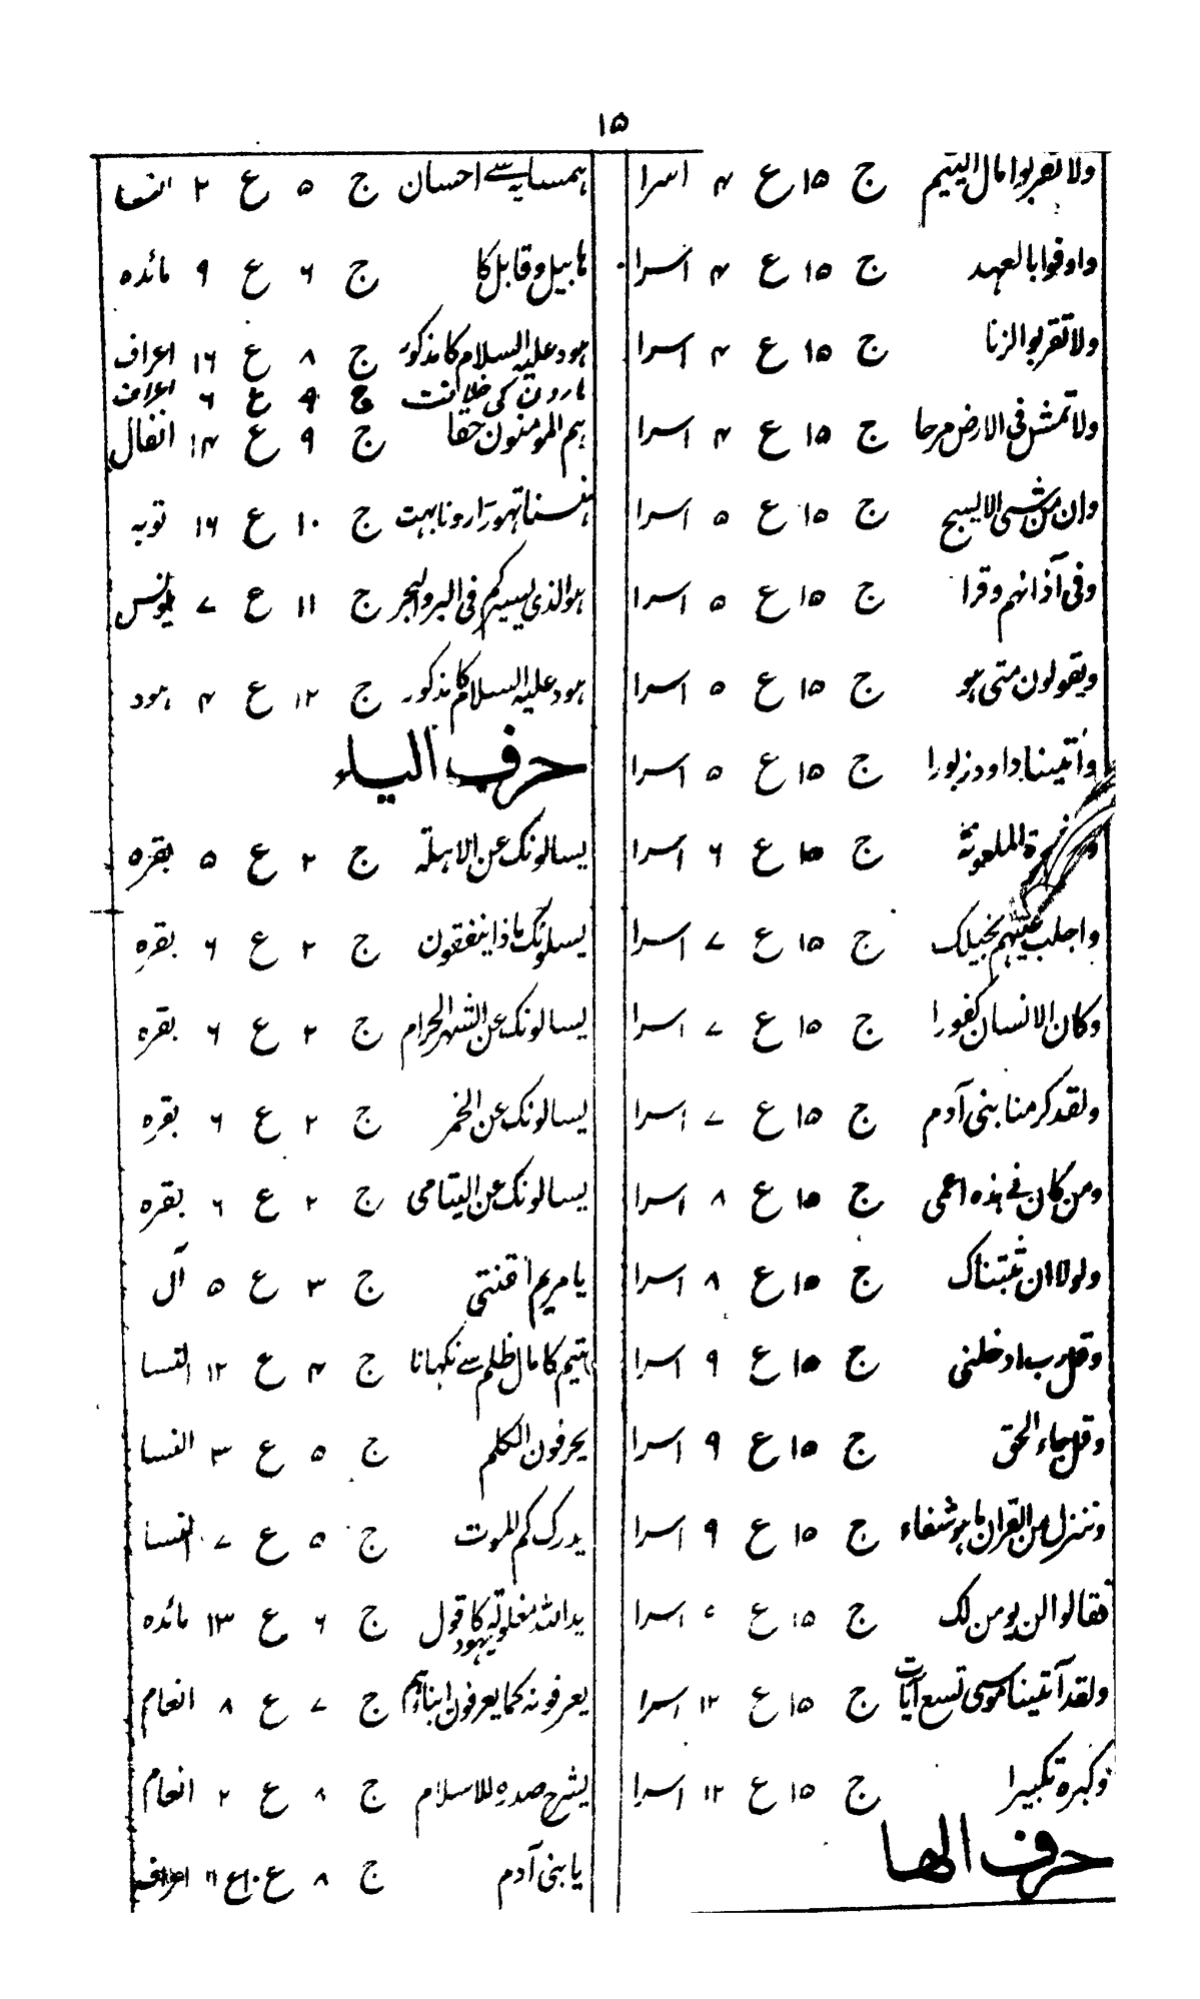 ۱۵
ولا تقربوا مال الیتیم ج ۱۵ ع ۴ اسرا
واوفوا بالعہد ج ۱۵ ع ۴ اسرا
ولا تقربو الزنا ج ۱۵ ع ۴ اسرا
ولا تمش فی الارض مرحا ج ۱۵ ع ۴ اسرا
وان من شی الا یسبح ج ۱۵ ع ۵ اسرا
وفی آذانہم وقرا ج ۱۵ ع ۵ اسرا
ویقولون متی ہو ج ۱۵ ع ۵ اسرا
وآتینا داود زبورا ج ۱۵ ع ۵ اسرا
الملعونۃ ج ۱۵ ع ۶ اسرا
واجلب علیہم بخیلک ج ۱۵ ع ۷ اسرا
وکان الانسان کفورا ج ۱۵ ع ۷ اسرا
ولقد کرمنا بنی آدم ج ۱۵ ع ۷ اسرا
ومن کان فے ہذہ اعمی ج ۱۵ ع ۸ اسرا
ولولا ان ثبتناک ج ۱۵ ع ۸ اسرا
وقل رب ادخلنی ج ۱۵ ع ۹ اسرا
وقل جاء الحق ج ۱۵ ع ۹ اسرا
وننزل من القران ما ہو شفاء ج ۱۵ ع ۹ اسرا
فقالوا لن یومن لک ج ۱۵ ع اسرا
ولقد آتینا موسی تسع آیات ج ۱۵ ع ۱۲ اسرا
وکبرہ تکبیرا ج ۱۵ ع ۱۲ اسرا
حرف الہا
ہمسایہ سے احسان ج ۵ ع ۲ النسا
ہابیل وقابل کا ج ۶ ع ۹ مائدہ
ہود علیہ السلام کا مذکور ج ۸ ع ۱۶ اعراف
ہارون کی خلافت ج ۹ ع ۶ اعراف
ہم المومنون حقا ج ۹ ع ۱۴ انفال
ہنسنا تہورا رونا بہت ج ۱۰ ع ۱۶ توبہ
ہو الذی یسیرکم فی البر والبحر ج ۱۱ ع ۷ یونس
ہود علیہ السلام کا مذکور ج ۱۲ ع ۴ ہود
حرف الیاء
یسالونک عن الاہلۃ ج ۲ ع ۵ بقرہ
یسلونک ماذا ینفقون ج ۲ ع ۶ بقرہ
یسالونک عن الشہر الحرام ج ۲ ع ۶ بقرہ
یسالونک عن الخمر ج ۲ ع ۶ بقرہ
یسالونک عن الیتامی ج ۲ ع ۶ بقرہ
یا مریم اقنتی ج ۳ ع ۵ آل
یتیم کا مال ظلم سے نکہانا ج ۴ ع ۱۲ النسا
یحرفون الکلم ج ۵ ع ۳ النسا
یدرک کم الموت ج ۵ ع ۷ النسا
ید اللہ مغلولۃ یہود کا قول ج ۶ ع ۱۳ مائدہ
یعرفونہ کما یعرفون ابناءہم ج ۷ ع ۸ انعام
یشرح صدرہ للاسلام ج ۸ ع ۲ انعام
یا بنی آدم ج ۸ ع ۱۰ ع ۱۱ اعراف